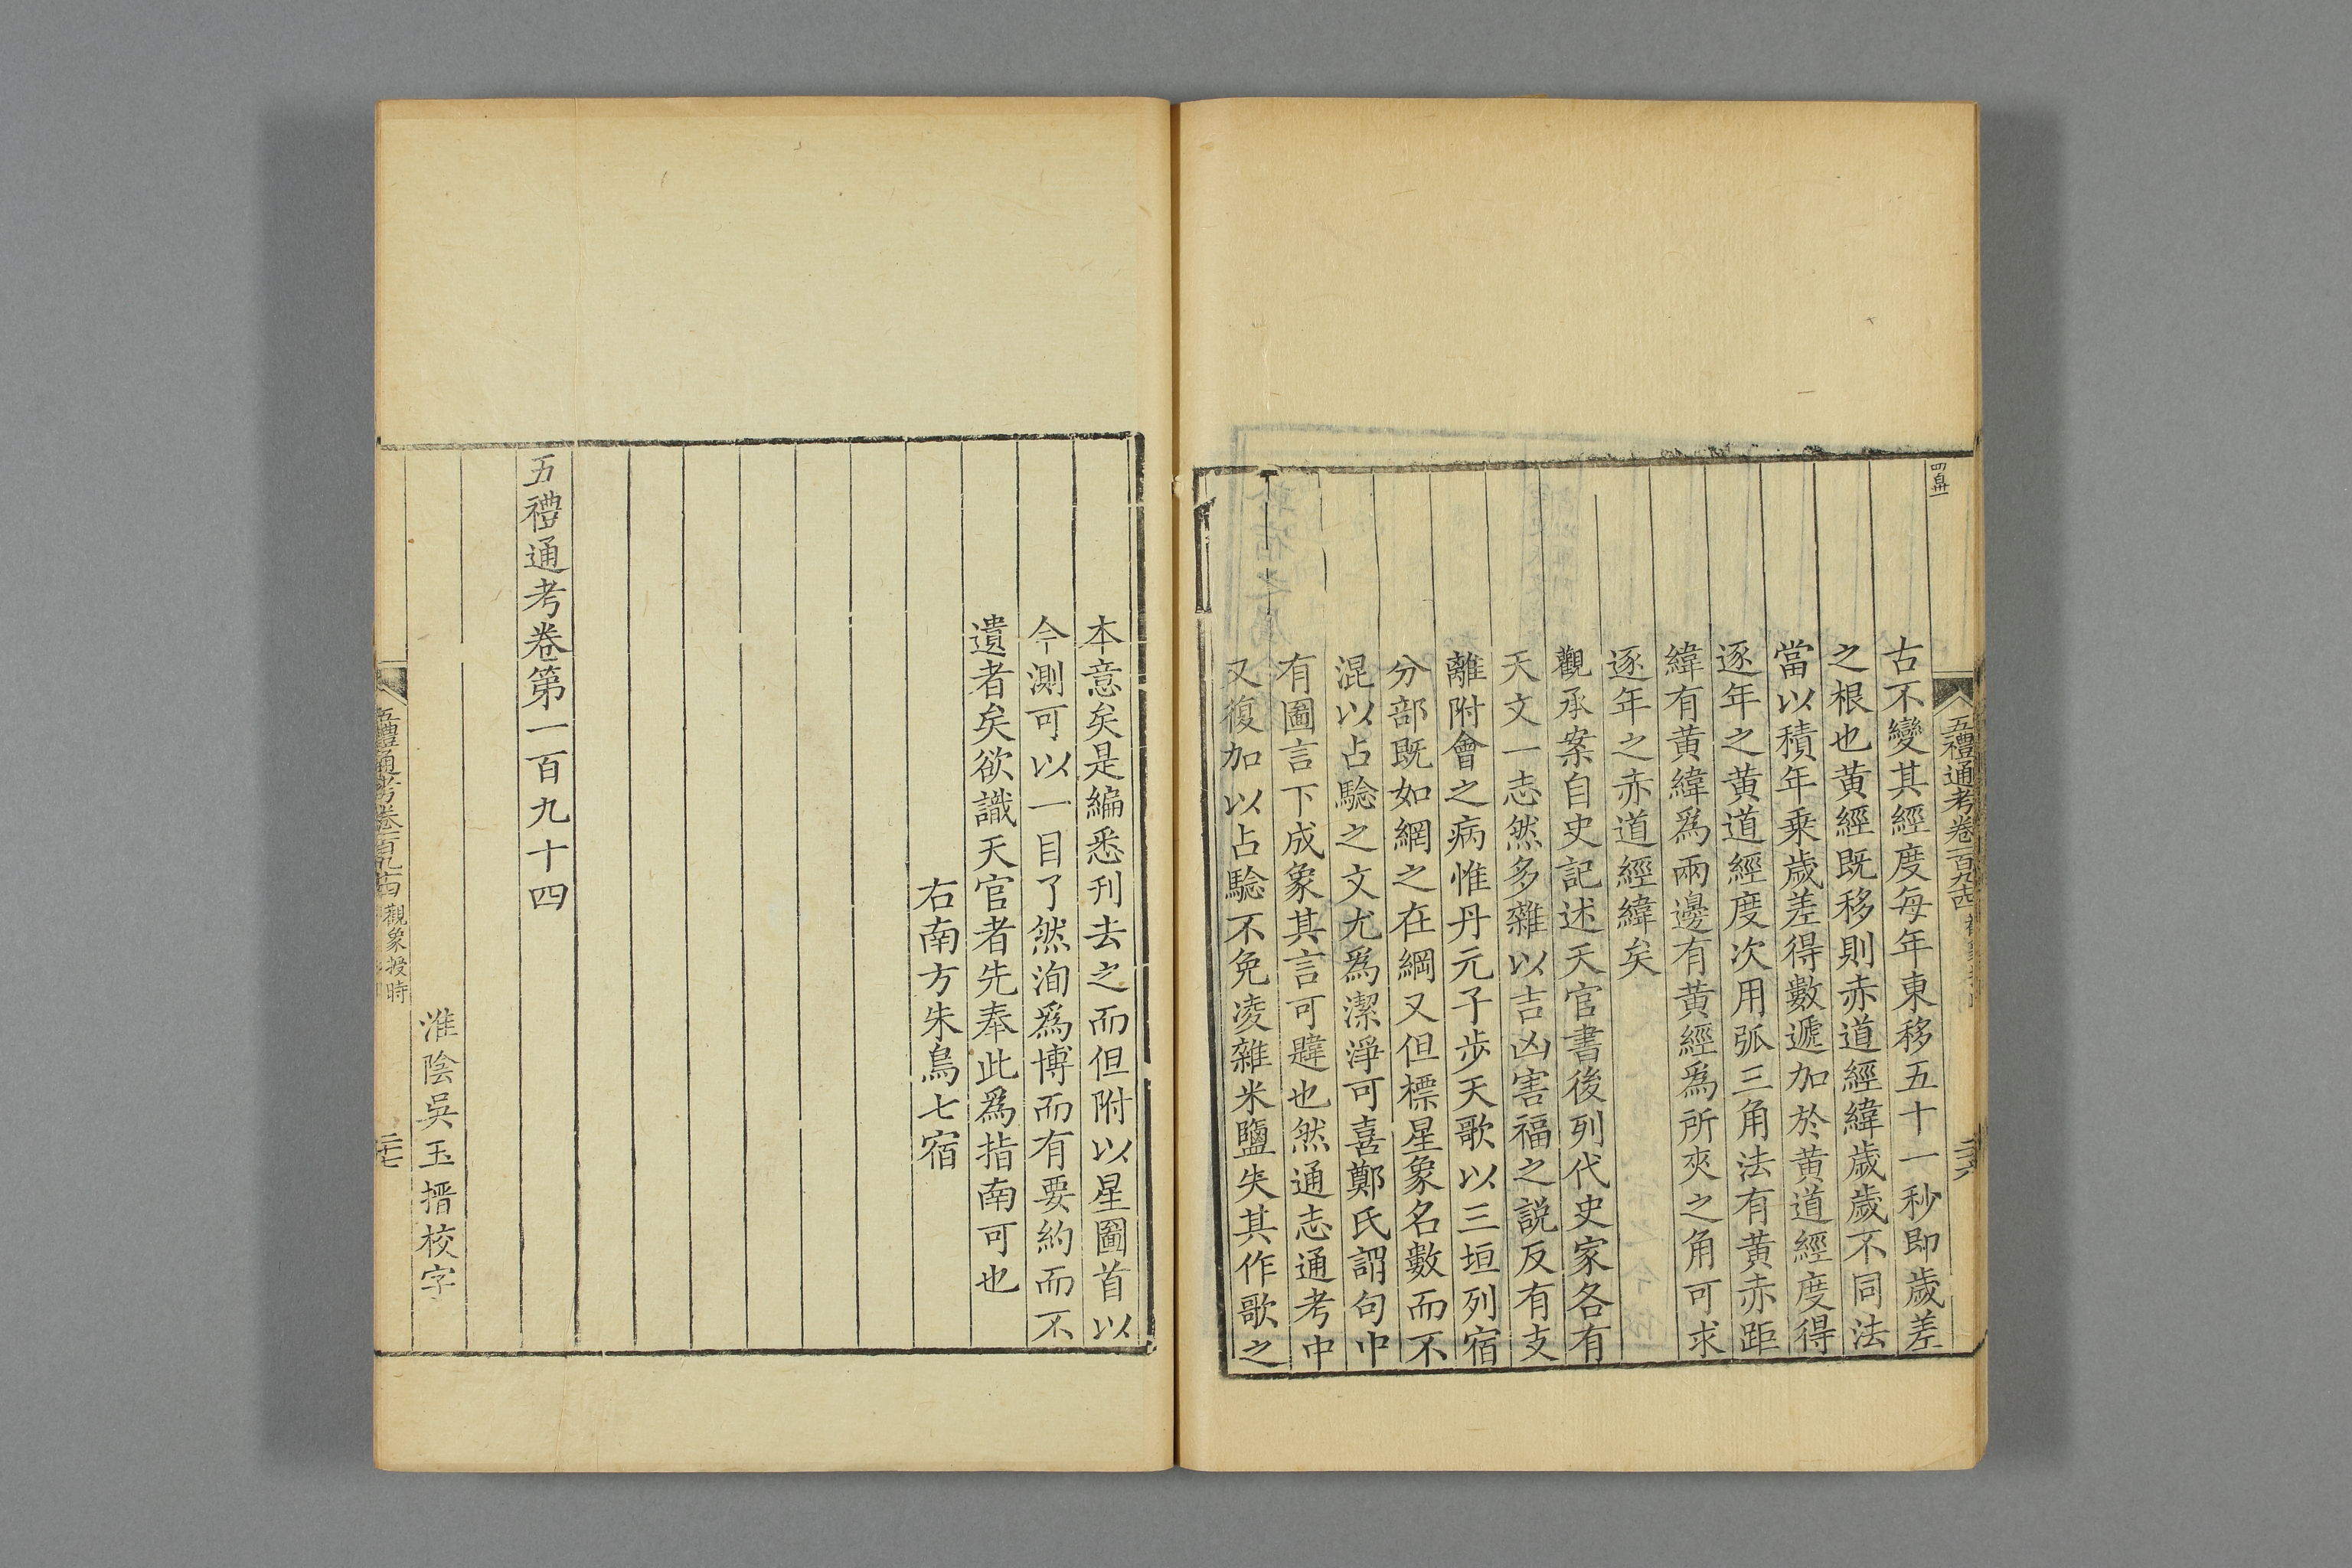 五禮通考卷一百九十四
古不變其經度每年東移五十一秒即歲差
之根也黃經既移則赤道經緯歲歲不同法
當以積年乗歲差得數遞加於黃道經度得
逐年之黃道經度次用弧三角法有黃赤距
緯有黃緯爲兩邊有黃經爲所夾之角可求
逐年之赤道經緯矣
觀承案自史記述天官書後列代史家各有
天文一志然多雜以吉凶害福之説反有支
離附會之病惟丹元子歩天歌以三垣列宿
分部既如網之在綱又但標星象名數而不
混以占驗之文尤爲潔淨可喜鄭氏謂句中
有圖言下成象其言可韙也然通志通考中
又復加以占驗不免凌雜米鹽失其作歌之
本意矣是編悉刋去之而但附以星圖首以
今測可以一目了然洵爲博而有要約而不
遺者矣欲識天官者先奉此爲指南可也
右南方朱鳥七宿
五禮通考卷第一百九十四
淮陰吳玉搢校字
五禮通考卷一百九十四 觀象授時